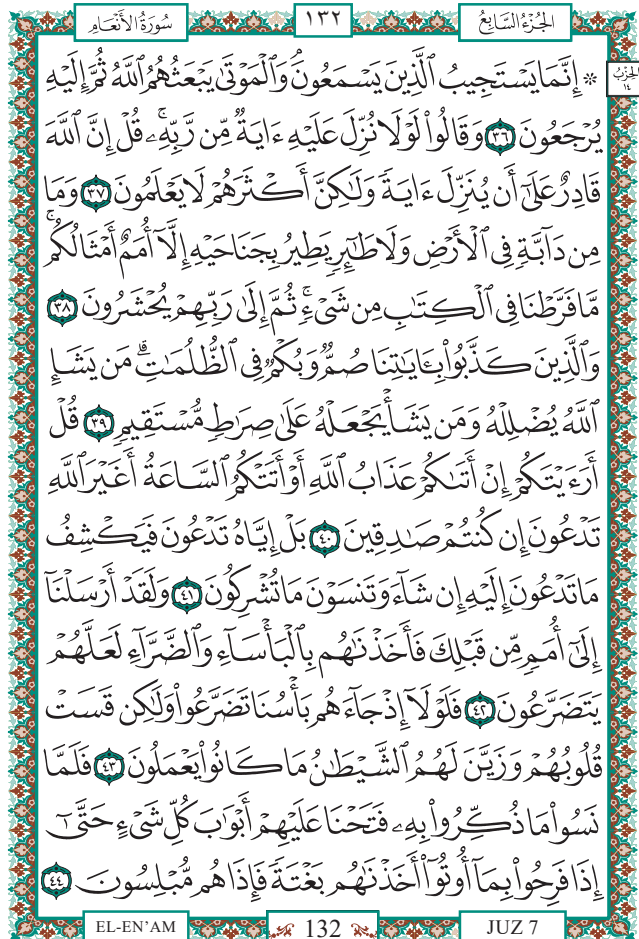 سُورَةُ الأَنْعَامِ
١٣٢
الجُزْءُ السَّابِعُ
الحِزْبُ
١٤
۞ إِنَّمَا يَسْتَجِيبُ ٱلَّذِينَ يَسْمَعُونَۘ وَٱلْمَوْتَىٰ يَبْعَثُهُمُ ٱللَّهُ ثُمَّ إِلَيْهِ
يُرْجَعُونَ ٣٦ وَقَالُوا۟ لَوْلَا نُزِّلَ عَلَيْهِ ءَايَةٌ مِّن رَّبِّهِۦۚ قُلْ إِنَّ ٱللَّهَ
قَادِرٌ عَلَىٰٓ أَن يُنَزِّلَ ءَايَةً وَلَٰكِنَّ أَكْثَرَهُمْ لَا يَعْلَمُونَ ٣٧ وَمَا
مِن دَآبَّةٍ فِى ٱلْأَرْضِ وَلَا طَٰٓئِرٍ يَطِيرُ بِجَنَاحَيْهِ إِلَّآ أُمَمٌ أَمْثَالُكُمۚ
مَّا فَرَّطْنَا فِى ٱلْكِتَٰبِ مِن شَىْءٍۚ ثُمَّ إِلَىٰ رَبِّهِمْ يُحْشَرُونَ ٣٨
وَٱلَّذِينَ كَذَّبُوا۟ بِـَٔايَٰتِنَا صُمٌّ وَبُكْمٌ فِى ٱلظُّلُمَٰتِۗ مَن يَشَإِ
ٱللَّهُ يُضْلِلْهُ وَمَن يَشَأْ يَجْعَلْهُ عَلَىٰ صِرَٰطٍ مُّسْتَقِيمٍ ٣٩ قُلْ
أَرَءَيْتَكُمْ إِنْ أَتَىٰكُمْ عَذَابُ ٱللَّهِ أَوْ أَتَتْكُمُ ٱلسَّاعَةُ أَغَيْرَ ٱللَّهِ
تَدْعُونَ إِن كُنتُمْ صَٰدِقِينَ ٤٠ بَلْ إِيَّاهُ تَدْعُونَ فَيَكْشِفُ
مَا تَدْعُونَ إِلَيْهِ إِن شَآءَ وَتَنسَوْنَ مَا تُشْرِكُونَ ٤١ وَلَقَدْ أَرْسَلْنَآ
إِلَىٰٓ أُمَمٍ مِّن قَبْلِكَ فَأَخَذْنَٰهُم بِٱلْبَأْسَآءِ وَٱلضَّرَّآءِ لَعَلَّهُمْ
يَتَضَرَّعُونَ ٤٢ فَلَوْلَآ إِذْ جَآءَهُم بَأْسُنَا تَضَرَّعُوا۟ وَلَٰكِن قَسَتْ
قُلُوبُهُمْ وَزَيَّنَ لَهُمُ ٱلشَّيْطَٰنُ مَا كَانُوا۟ يَعْمَلُونَ ٤٣ فَلَمَّا
نَسُوا۟ مَا ذُكِّرُوا۟ بِهِۦ فَتَحْنَا عَلَيْهِمْ أَبْوَٰبَ كُلِّ شَىْءٍ حَتَّىٰٓ
إِذَا فَرِحُوا۟ بِمَآ أُوتُوٓا۟ أَخَذْنَٰهُم بَغْتَةً فَإِذَا هُم مُّبْلِسُونَ ٤٤
EL-EN'AM
132
JUZ 7